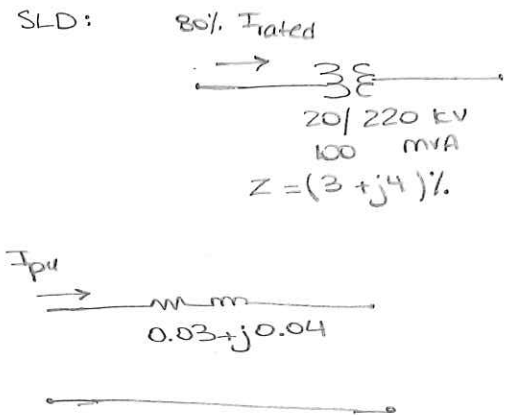 SLD: 80% Irated
20/220 kV
100 mVA
Z = (3 + j4)%
Ipu
0.03+j0.04